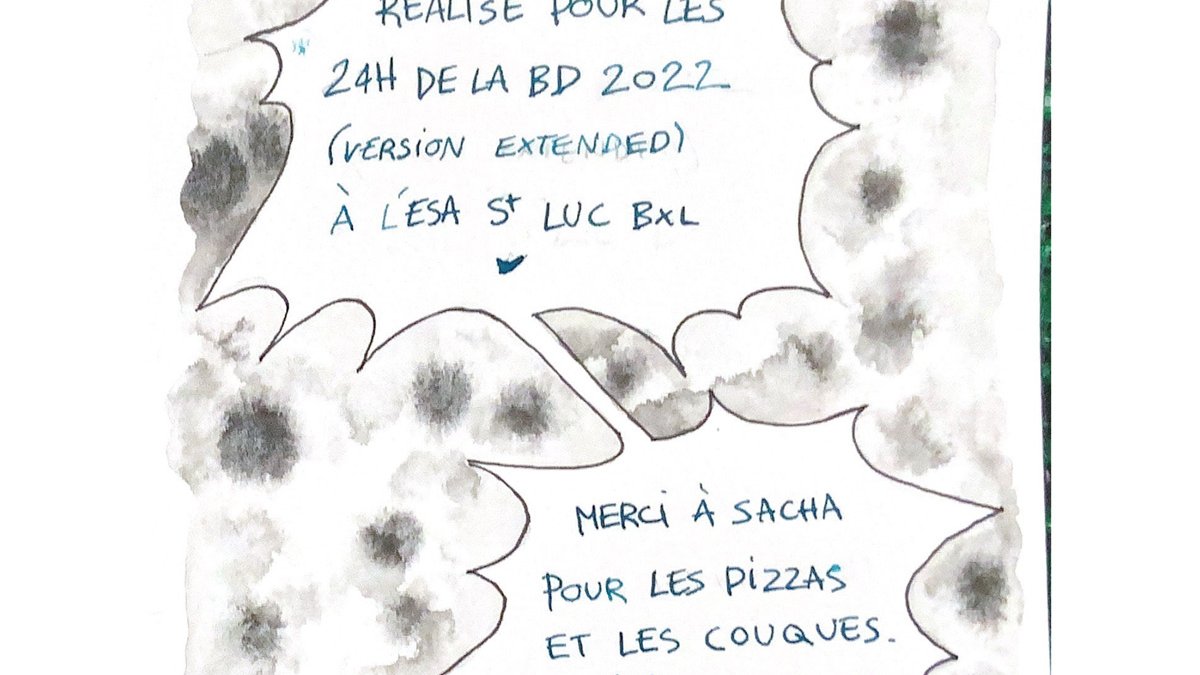 RÉALISÉ POUR LES
24H DE LA BD 2022
(VERSION EXTENDED)
À L'ESA St LUC BXL
MERCI À SACHA
POUR LES PIZZAS
ET LES COUQUES.